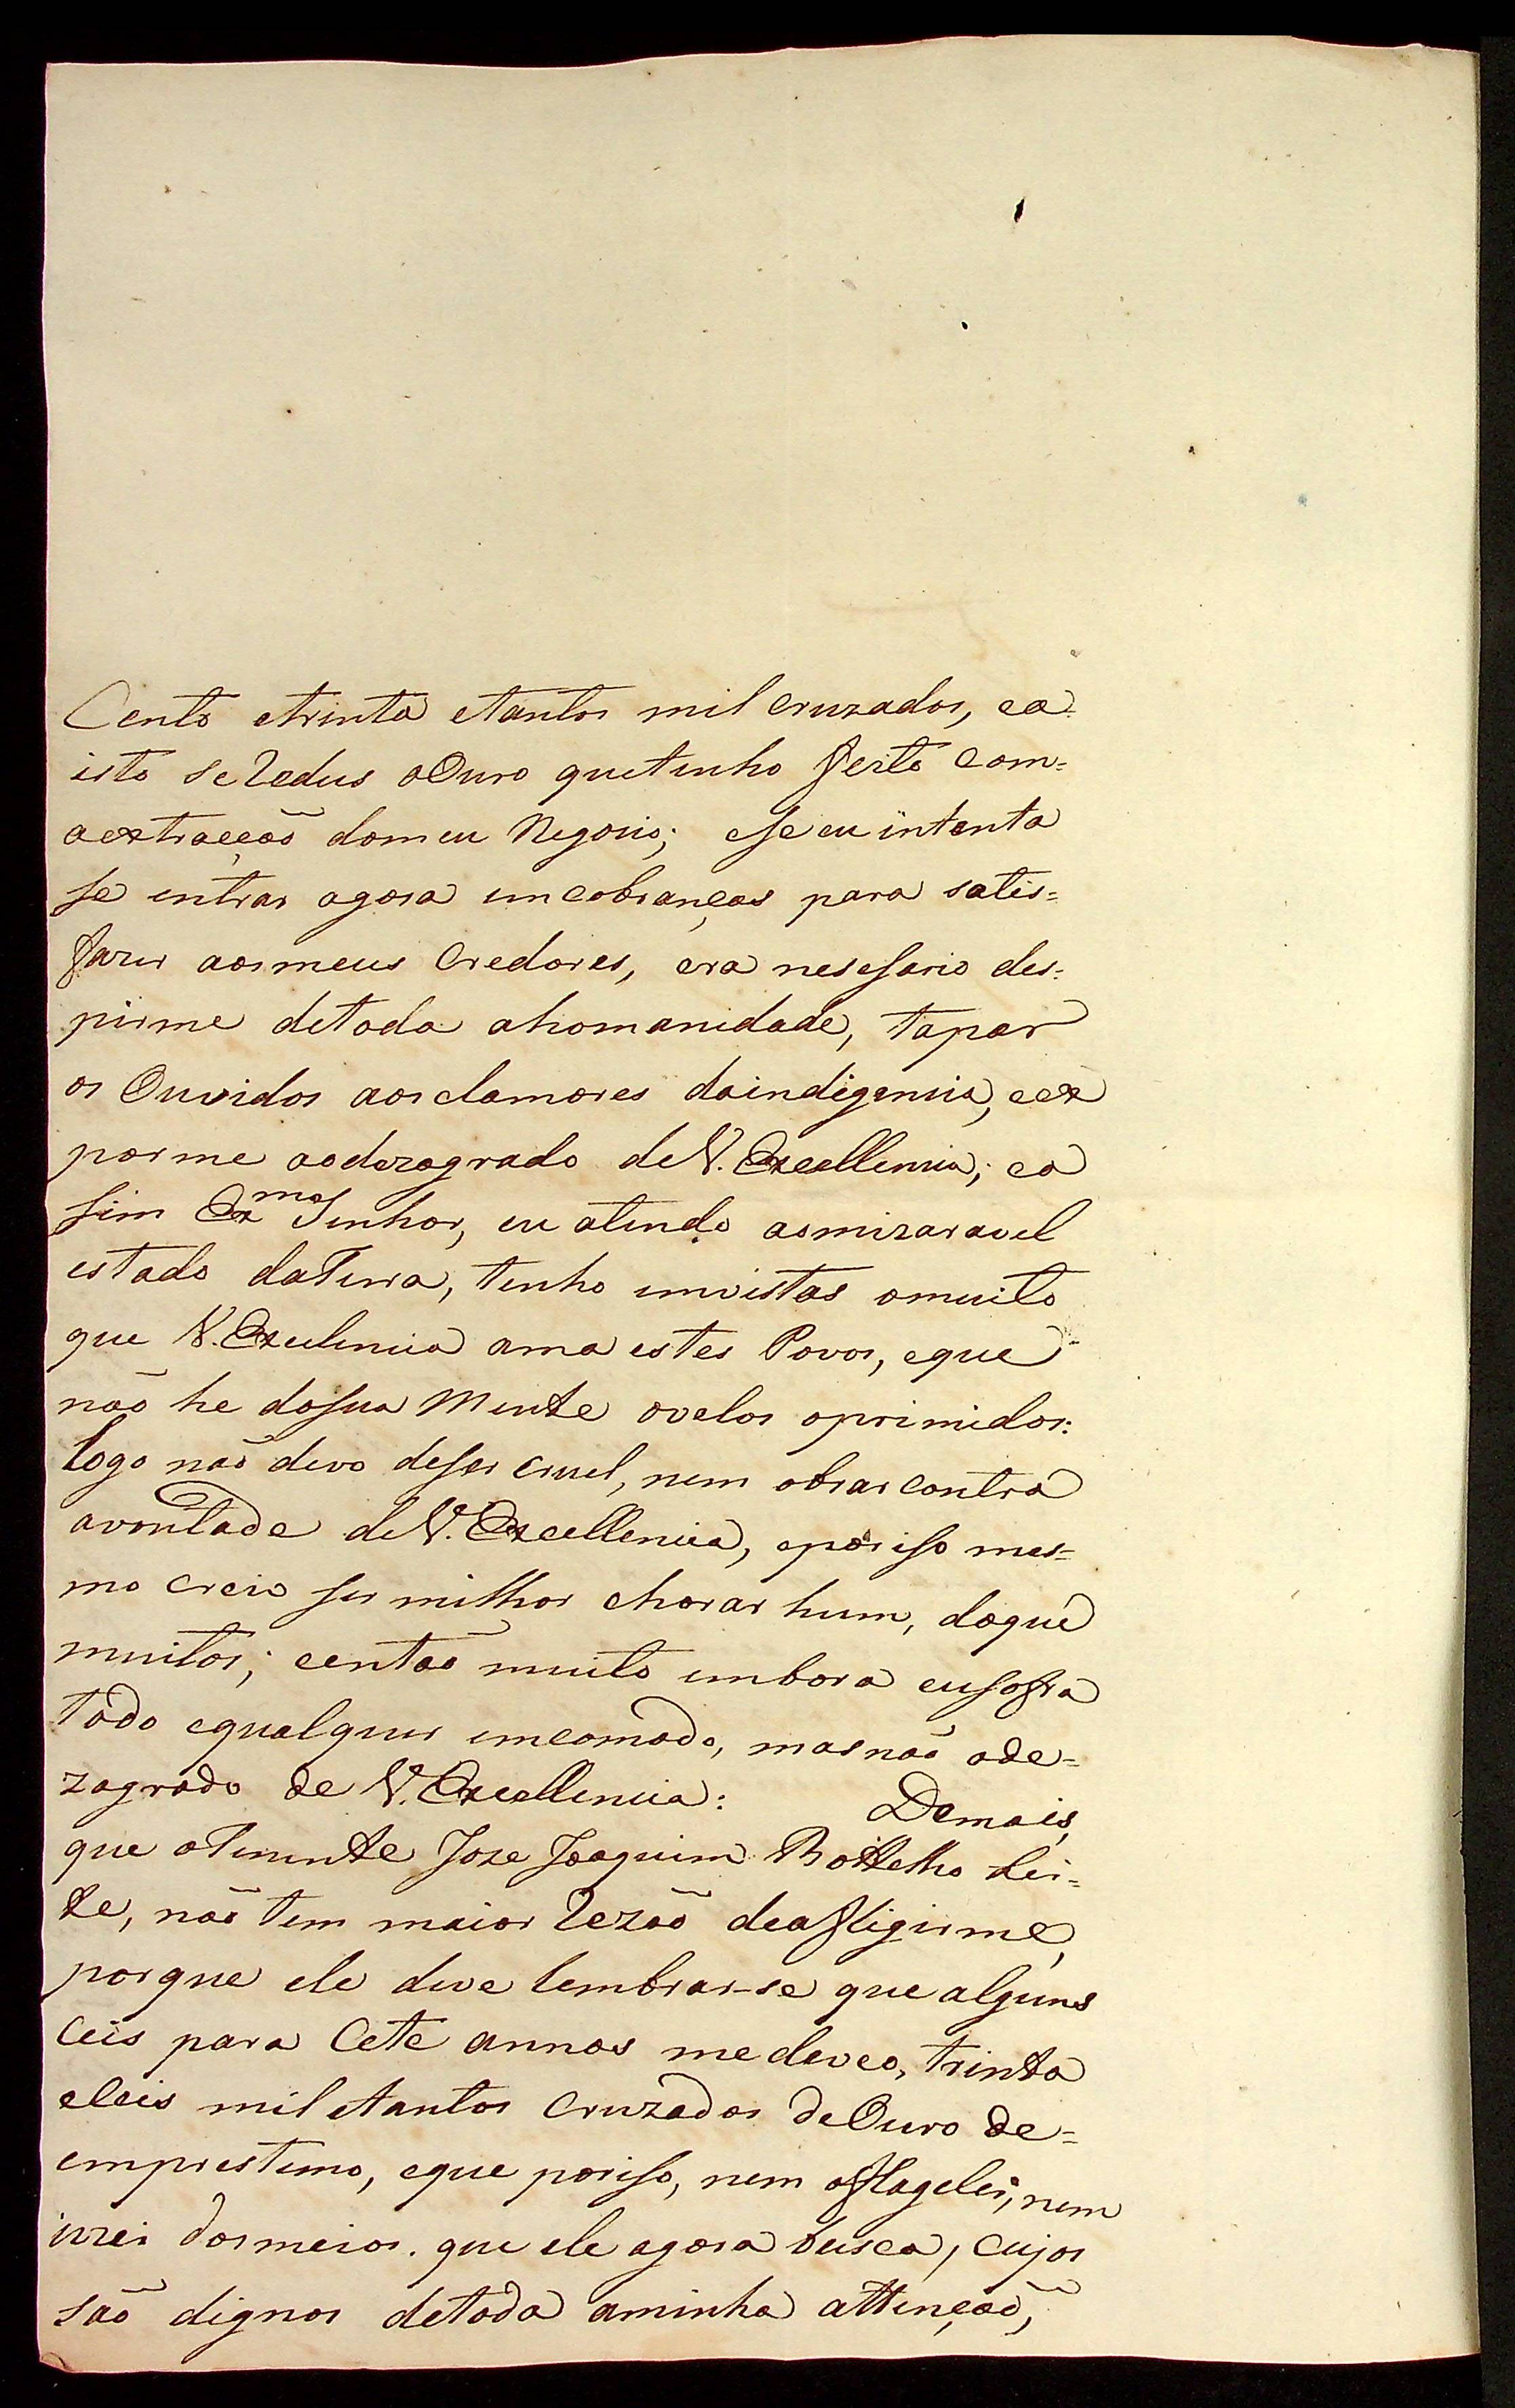 Cento etrinta etantos mil cruzados, ea
isto se Redus oOuro quetenho feito com=
aextracção domeu Negocio; eseeu intenta
se entrar agora emcobranças para satis=
fazer aosmeus Credores, era nesesario des=
pirme detoda ahomanidade, tapar
os Ouvidos aosclamores daindigencia, eex
porme aodezagrado deV. Excellencia; ea
sim Exmo Senhor, eu atendo aomizaravel
estado daTerra, tenho emvistas omuito
que V. Excelencia ama estes Povos, eque
não he dasua Mente ovelos oprimidos:
logo não devo deser cruel, nem obrar contra
avontade deV. Excellencia, eporiso mes=
mo creio ser milhor chorar hum, doque
muitos; eentão muito embora eusofra
todo equalquer emcomodo, masnão ode=
zagrado de V. Excellencia: Demais,
que oTenente Joze Joaquim Bottelho Lei=
te, não tem maior Rezão deafligirme,
porque ele deve lembrar-se que alguns
Ceis para Cete annos medeveo, trinta
eCeis mil etantos Cruzados deOuro de=
emprestimo, eque poriso, nem oflagelei, nem
uzei dosmeios. que ele agora busca, cujos
são dignos detoda aminha attenção,